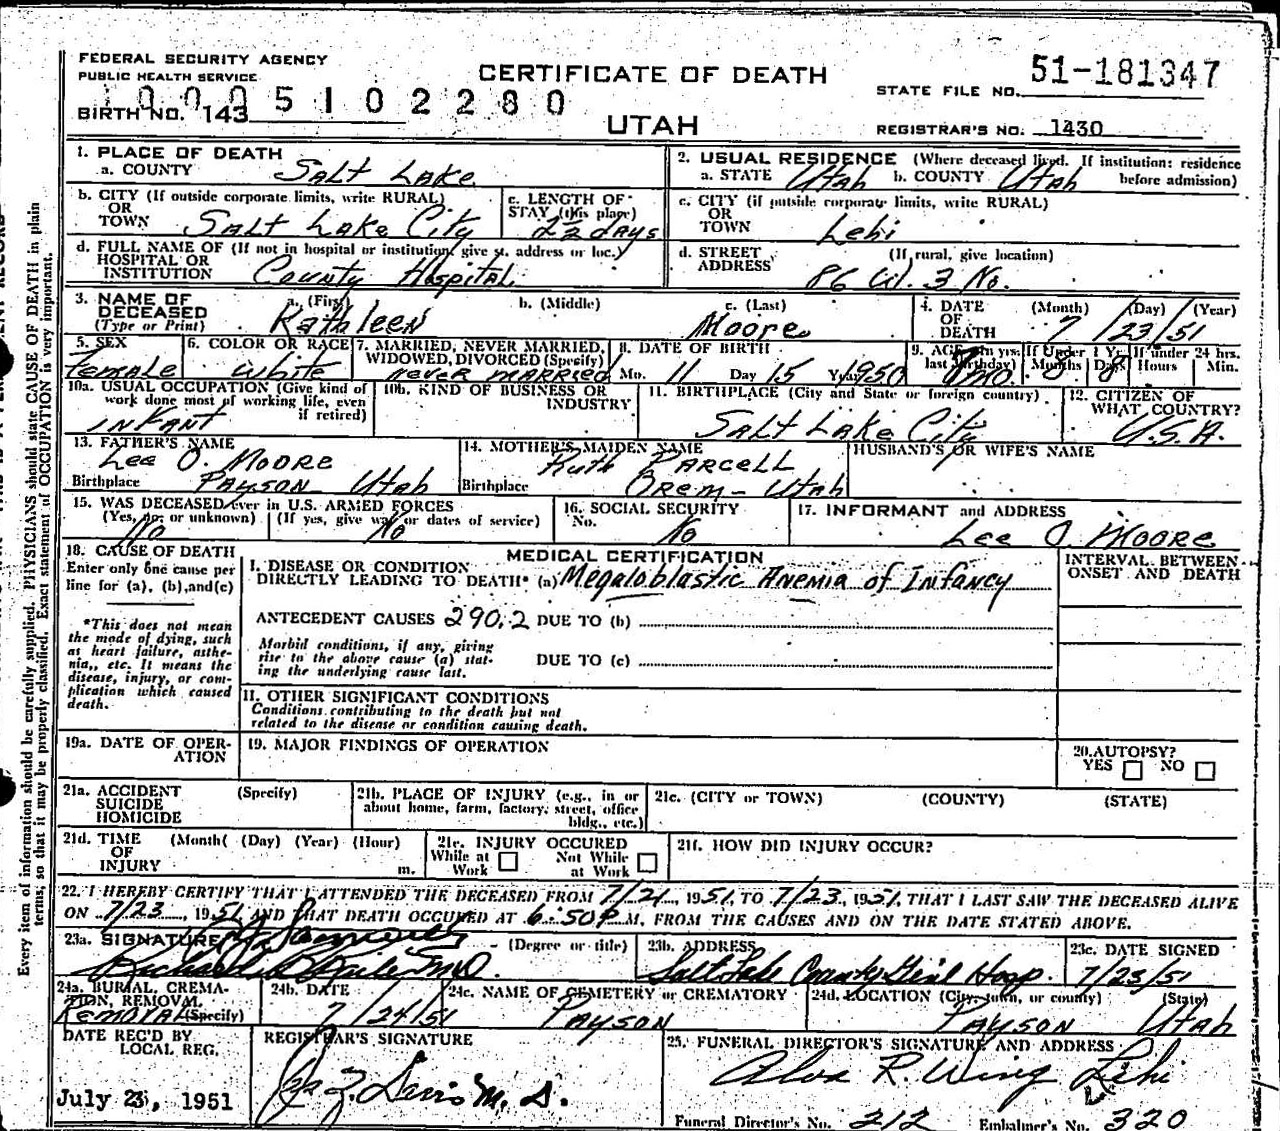 FEDERAL SECURITY AGENCY
PUBLIC HEALTH SERVICE
CERTIFICATE OF DEATH
UTAH
51-181347
STATE FILE NO.
0005102280
BIRTH NO. 143
REGISTRAR'S NO. 1430
1. PLACE OF DEATH
a. COUNTY Salt Lake
2. USUAL RESIDENCE (Where deceased lived. If institution: residence before admission)
a. STATE Utah b. COUNTY Utah
b. CITY (If outside corporate limits, write RURAL) OR TOWN Salt Lake City
c. LENGTH OF STAY (this place) days
c. CITY (if outside corporate limits, write RURAL) OR TOWN Lehi
d. FULL NAME OF (If not in hospital or institution, give st. address or loc.) HOSPITAL OR INSTITUTION County Hospital
d. STREET ADDRESS (If rural, give location)
3. NAME OF DECEASED (Type or Print)
a. (First) Kathleen
b. (Middle)
c. (Last) Moore
4. DATE OF DEATH (Month) (Day) (Year) 7/23/51
5. SEX Female
6. COLOR OR RACE White
7. MARRIED, NEVER MARRIED, WIDOWED, DIVORCED (Specify) Never Married
8. DATE OF BIRTH Mo. 11 Day 15 Year 1950
9. AGE (in yrs. last birthday) If Under 1 Yr. Months 8 Days 8 If under 24 hrs. Hours Min.
10a. USUAL OCCUPATION (Give kind of work done most of working life, even if retired) infant
10b. KIND OF BUSINESS OR INDUSTRY
11. BIRTHPLACE (City and State or foreign country) Salt Lake City
12. CITIZEN OF WHAT COUNTRY? U.S.A.
13. FATHER'S NAME Lee O. Moore
Birthplace Payson Utah
14. MOTHER'S MAIDEN NAME Ruth Parcell
Birthplace Orem - Utah
HUSBAND'S OR WIFE'S NAME
15. WAS DECEASED ever in U.S. ARMED FORCES
(Yes, no, or unknown) No (If yes, give war or dates of service) No
16. SOCIAL SECURITY No. No
17. INFORMANT and ADDRESS Lee O Moore
18. CAUSE OF DEATH
Enter only one cause per line for (a), (b), and (c)
MEDICAL CERTIFICATION
INTERVAL BETWEEN ONSET AND DEATH
I. DISEASE OR CONDITION DIRECTLY LEADING TO DEATH* (a) Megaloblastic Anemia of Infancy
ANTECEDENT CAUSES 290.2 DUE TO (b)
*This does not mean the mode of dying, such as heart failure, asthenia, etc. It means the disease, injury, or complication which caused death.
Morbid conditions, if any, giving rise to the above cause (a) stating the underlying cause last.
DUE TO (c)
II. OTHER SIGNIFICANT CONDITIONS
Conditions contributing to the death but not related to the disease or condition causing death.
19a. DATE OF OPERATION
19. MAJOR FINDINGS OF OPERATION
20. AUTOPSY?
YES NO
21a. ACCIDENT SUICIDE HOMICIDE (Specify)
21b. PLACE OF INJURY (e.g., in or about home, farm, factory, street, office bldg., etc.)
21c. (CITY or TOWN) (COUNTY) (STATE)
21d. TIME OF INJURY (Month( (Day) (Year) (Hour) m.
21e. INJURY OCCURED While at Work Not While at Work
21f. HOW DID INJURY OCCUR?
22. I HEREBY CERTIFY THAT I ATTENDED THE DECEASED FROM 7/21, 1951, TO 7/23, 1951, THAT I LAST SAW THE DECEASED ALIVE
ON 7/23, 1951, AND THAT DEATH OCCURED AT 6:50 P.M. FROM THE CAUSES AND ON THE DATE STATED ABOVE.
23a. SIGNATURE (Degree or title) Richard M.D.
23b. ADDRESS Salt Lake County Genl Hosp.
23c. DATE SIGNED 7/23/51
24a. BURIAL, CREMATION, REMOVAL (Specify) Removal
24b. DATE 7/24/51
24c. NAME OF CEMETERY or CREMATORY Payson
24d. LOCATION (City, town, or county) (State) Payson Utah
DATE REC'D BY LOCAL REG.
July 23, 1951
REGISTRAR'S SIGNATURE
M.D.
25. FUNERAL DIRECTOR'S SIGNATURE AND ADDRESS
R. Wing Lehi
Funeral Director's No. 212 Embalmer's No. 320
Every item of information should be carefully supplied. PHYSICIANS should state CAUSE OF DEATH in plain
terms, so that it may be properly classified. Exact statement of OCCUPATION is very important.